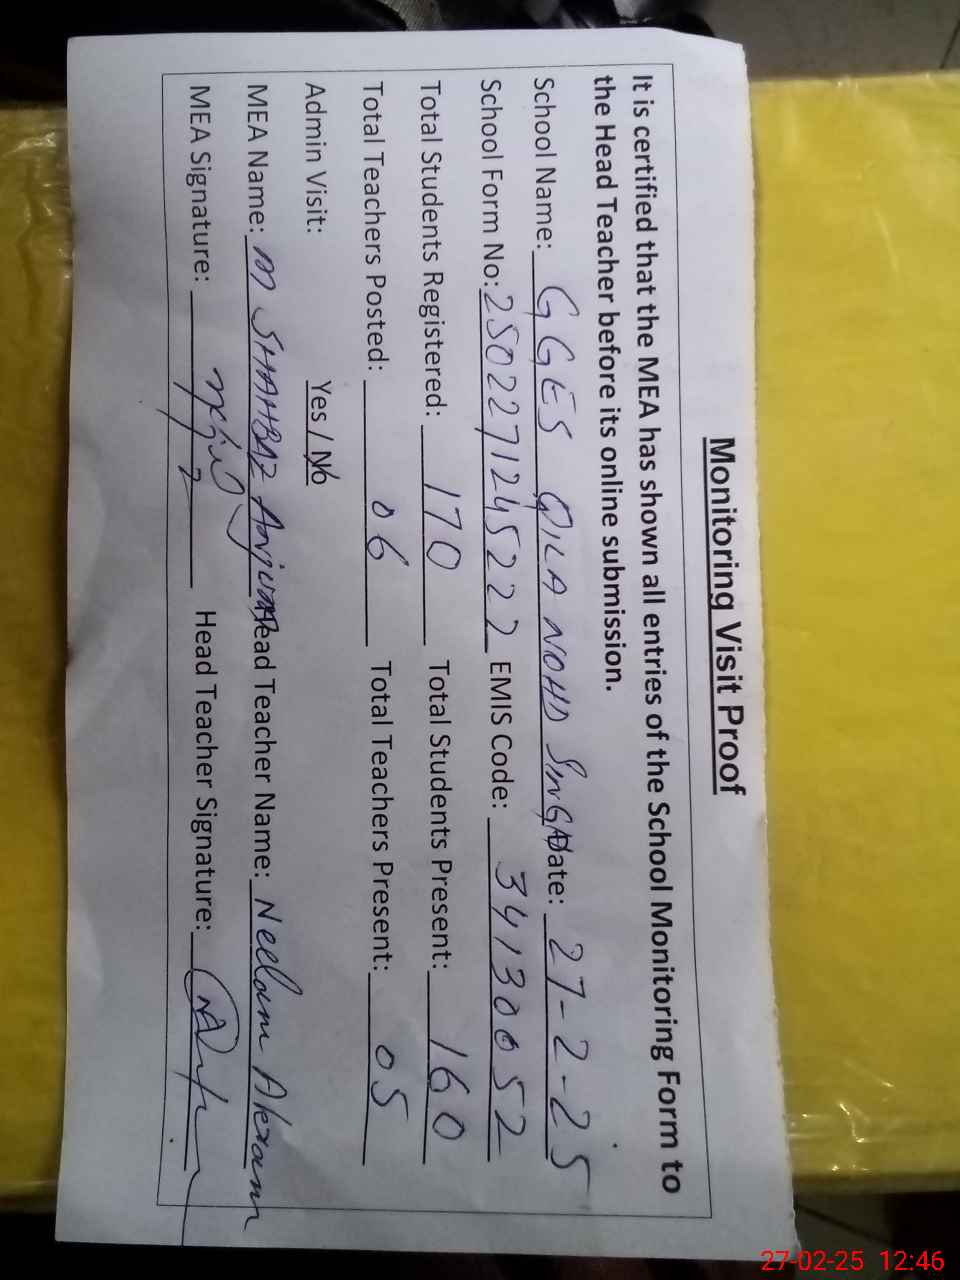 Monitoring Visit Proof
It is certified that the MEA has shown all entries of the School Monitoring Form to
the Head Teacher before its online submission.
School Name: GGES QILA NOHD SINGH Date: 27-2-25
School Form No: 2502271245222 EMIS Code: 34130052
Total Students Registered: 170 Total Students Present: 160
Total Teachers Posted: 06 Total Teachers Present: 05
Admin Visit: Yes / No
MEA Name: M SHAHBAZ Anjum Head Teacher Name: Neelam Akram
MEA Signature: Head Teacher Signature:
27-02-25 12:46